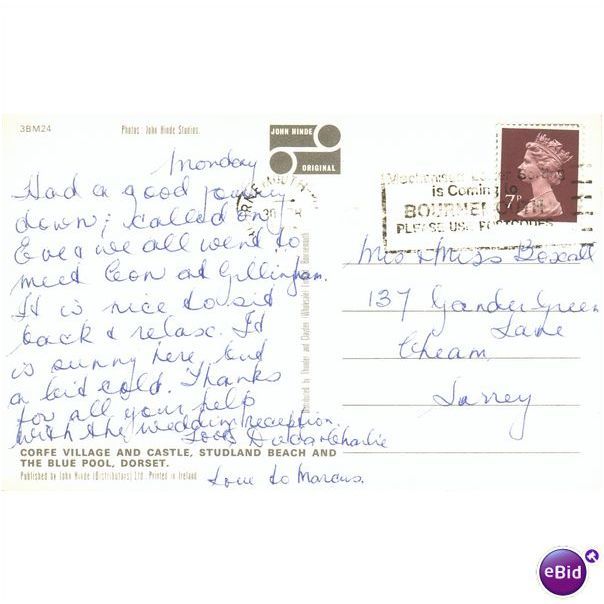 3BM24
Photos : John Hinde Studios.
JOHN HINDE
ORIGINAL
Monday
Had a good
down; called on
we all went to
meet Leon at Gillingham.
It is nice to sit
back & relax. It
is sunny here, but
a bit cold. Thanks
for all your help
with the wedding reception.
Charlie
Love to Marcus.
7P
is Coming to
BOURNEMOUTH
PLEASE USE POSTCODES
Mrs & Miss Boxall
137 Gander Green
Lane
Cheam
Surrey
CORFE VILLAGE AND CASTLE, STUDLAND BEACH AND
THE BLUE POOL, DORSET.
Published by John Hinde (Distributors) Ltd. Printed in Ireland
eBid